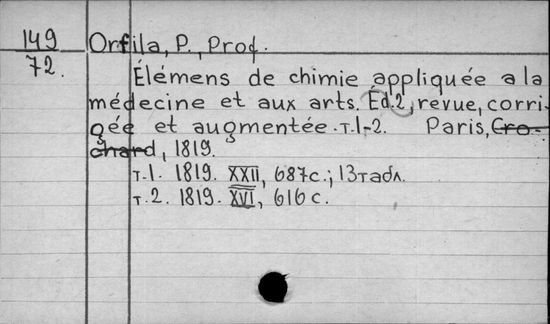 149 Orfila, P., Prof.
72.
Élémens de chimie appliquée a la
médecine et aux arts. Ed.2, revue, corri-
gée et augmentée. т.1-2. Paris, Cro-
chard, 1819.
т.1. 1819. XXII, 687с.; 13табл.
т.2. 1819. XVI, 616 с.